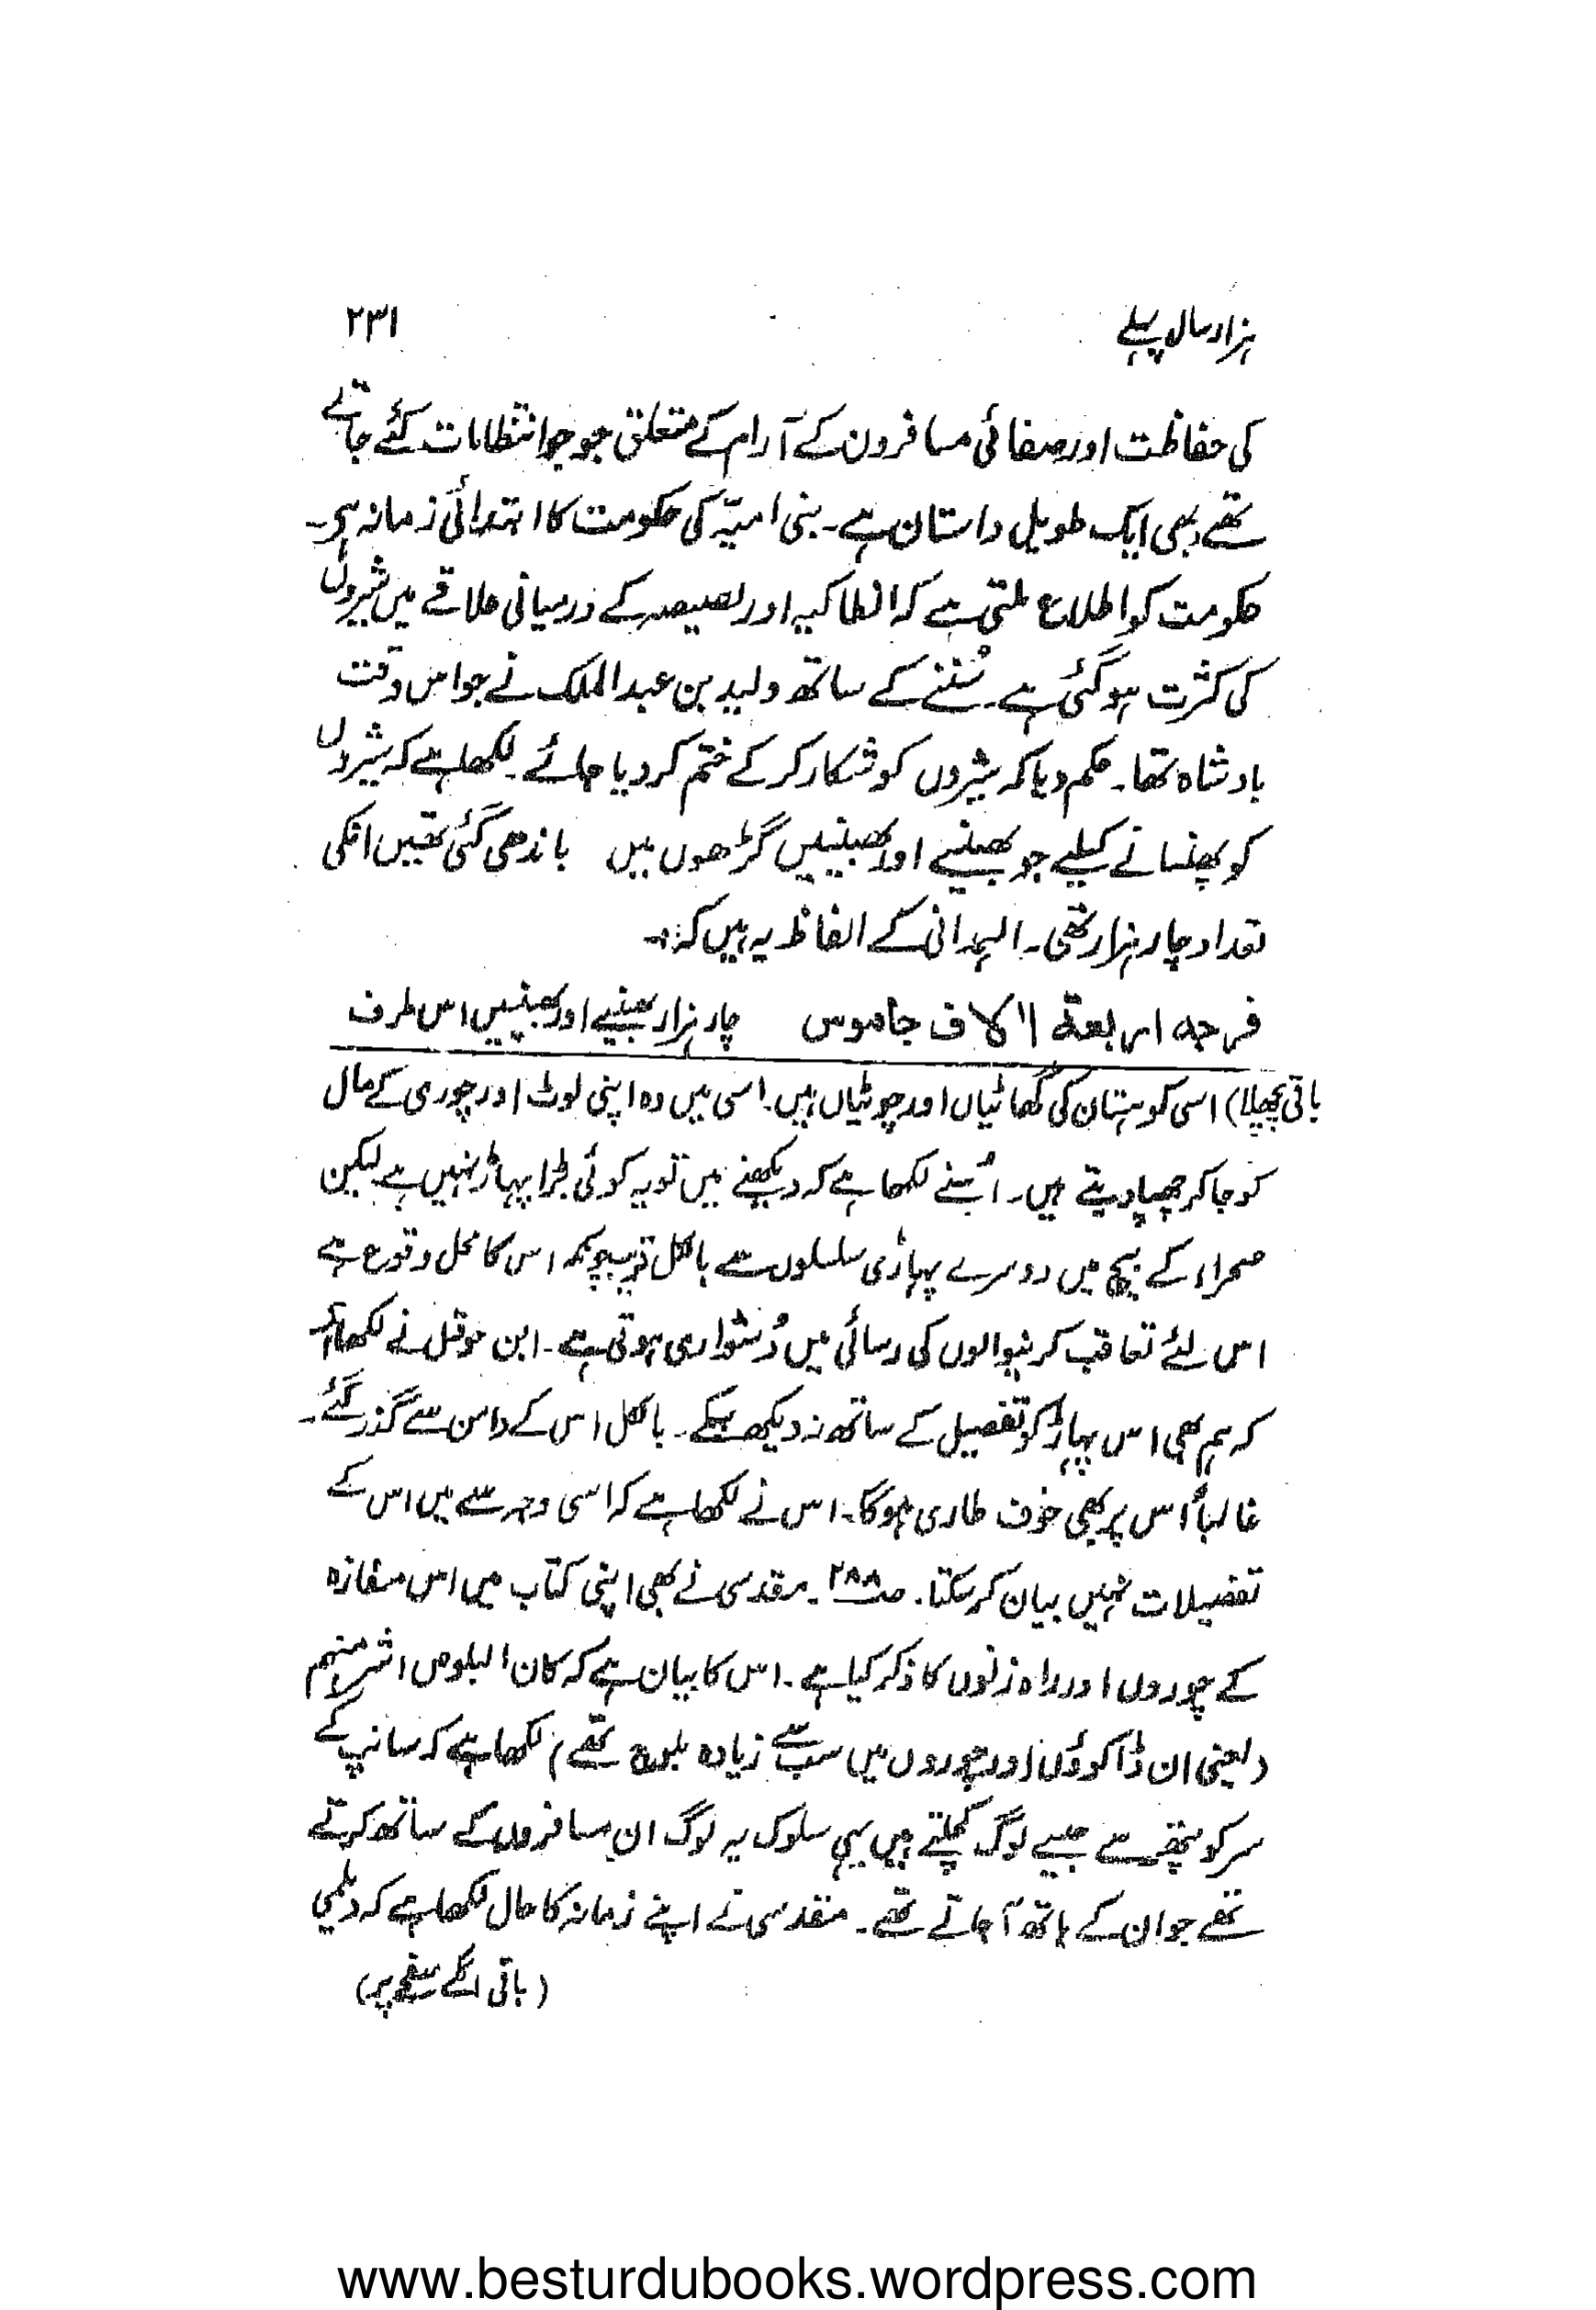 ہزار سال پہلے ۲۳۱
کی حفاظت اور صفائی مسافرون کے آرام کے متعلق جو جو انتظامات کئے جاتے
تھے یہ بھی ایک طویل داستان ہے۔ بنی امیّہ کی حکومت کا ابتدائی زمانہ ہی۔
حکومت کو اطلاع ملتی ہے کہ انطاکیہ اور لصیصہ کے درمیانی علاقے میں شیروں
کی کثرت ہو گئی ہے۔ سُننے کے ساتھ ولید بن عبدالملک نے جو اس وقت
بادشاہ تھا۔ حکم دیا کہ شیروں کو شکار کر کے ختم کر دیا جائے۔ لکھا ہے کہ شیروں
کو پھنسانے کیلیے جو بھینسے اور بھینسیں گڑھوں میں باندھی گئی تھیں انکی
تعداد چار ہزار تھی۔ الہمدانی کے الفاظ یہ ہیں کہ:۔
فرجه اربعة الاف جاموس چار ہزار بھینسے اور بھینسیں اس طرف
باقی پچھلا) اسی کوہستان کی گھاٹیاں اور چوٹیاں ہیں۔ اسی میں وہ اپنی لوٹ اور چوری کے مال
کو جا کر چھپا دیتے ہیں۔ اُسنے لکھا ہے کہ دیکھنے میں تو یہ کوئی بڑا پہاڑ نہیں ہے لیکن
صحراء کے بیچ میں دوسرے پہاڑی سلسلوں سے بالکل قریب چونکہ اس کا محل وقوع ہے
اس لئے تعاقب کرنیوالوں کی رسائی میں دُشواری ہوتی ہے۔ ابن حوقل نے لکھا ہے
کہ ہم بھی اس پہاڑ کو تفصیل کے ساتھ نہ دیکھ سکے۔ بالکل اس کے دامن سے گذر گئے۔
غالباً اس پر بھی خوف طاری ہو گا۔ اس نے لکھا ہے کہ اسی وجہ سے میں اس کے
تفصیلات نہیں بیان کر سکتا۔ صـ۲۸۸۔ مقدسی نے بھی اپنی کتاب میں اس مفازہ
کے چوروں اور راہ زنوں کا ذکر کیا ہے۔ اس کا بیان ہے کہ کان البلوص اشرہم
(یعنی ان ڈاکوؤں اور چوروں میں سب سے زیادہ بلوچ تھے) لکھا ہے کہ سانپ کے
سر کو پتھر سے جیسے لوگ کچلتے ہیں یہی سلوک یہ لوگ ان مسافروں کے ساتھ کرتے
تھے جو ان کے ہاتھ آ جاتے تھے۔ مقدسی نے اپنے زمانہ کا حال لکھا ہے کہ دیلمی
(باقی اگلے صفحے پر)
www.besturdubooks.wordpress.com